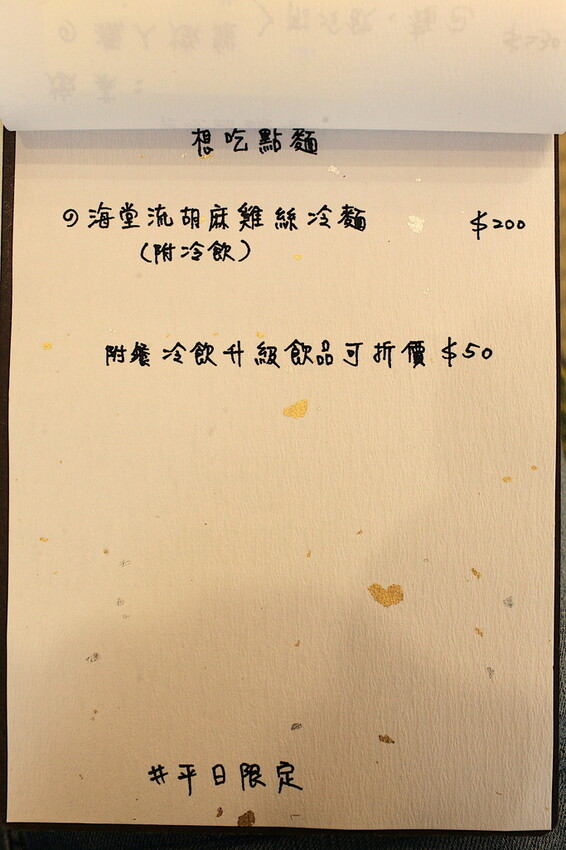 想吃點麵
の海堂流胡麻雞絲冷麵 $200
(附冷飲)
附餐冷飲升級飲品可折價 $50
#平日限定